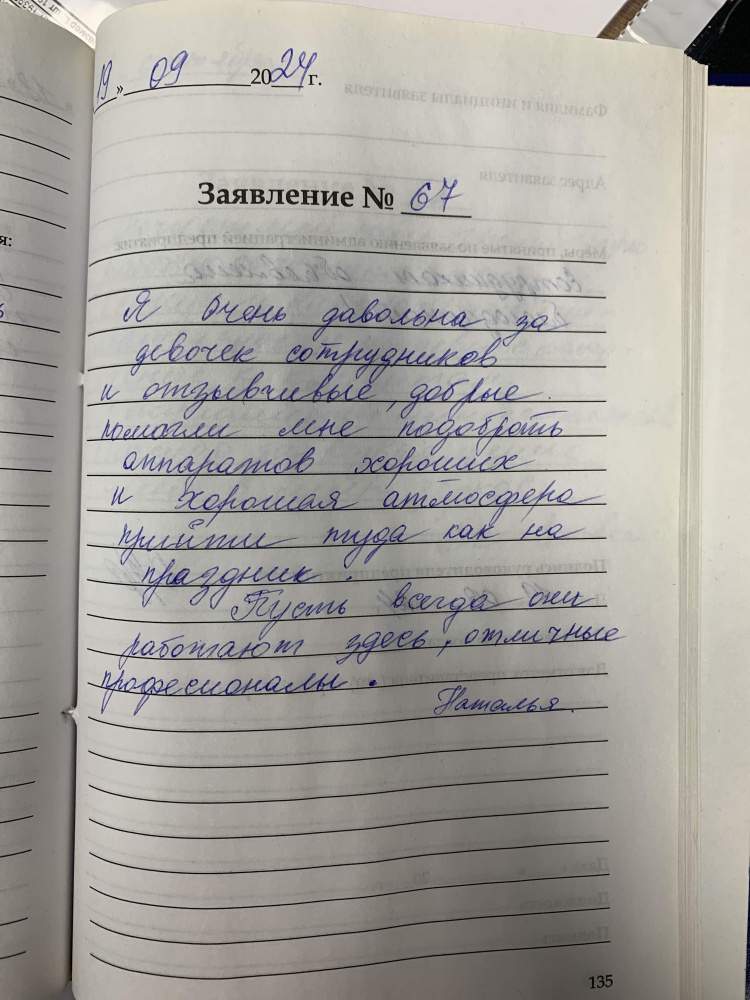 19 » 09 2024 г.
Заявление № 67
Я очень давольна за
девочек сотрудников
и отзывчивые, добрые.
помогли мне подобрать
аппаратов хороших
и хорошая атмосфера
прийти туда как на
праздник.
Пусть всегда они
работают здесь, отличные
професионалы.
Наталья.
135